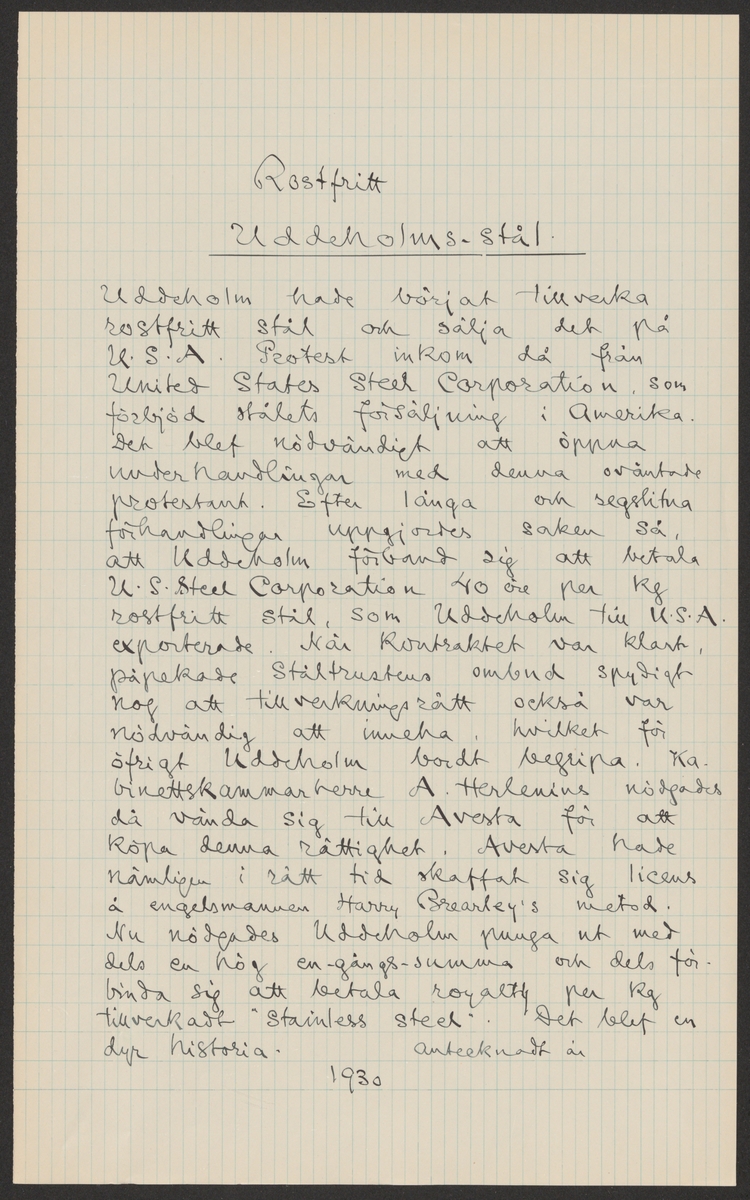 Rostfritt
Uddeholms-stål.
Uddeholm hade börjat tillverka
rostfritt stål och sälja det på
U.S.A. Protest inkom då från
United States Steel Corporation, som
förbjöd stålets försäljning i Amerika.
Det blef nödvändigt att öppna
underhandlingar med denna oväntade
protestant. Efter långa och segslitna
förhandlingar uppgjordes saken så,
att Uddeholm förband sig att betala
U.S. Steel Corporation 40 öre per kg
rostfritt stål, som Uddeholm till U.S.A.
exporterade. När kontraktet var klart,
påpekade Ståltrustens ombud spydigt
nog att tillverkningsrätt också var
nödvändig att inneha, hvilket för
öfrigt Uddeholm bordt begripa. Ka-
binettskammarherre A. Herlenius nödgades
då vända sig till Avesta för att
köpa denna rättighet. Avesta hade
nämligen i rätt tid skaffat sig licens
å engelsmannen Harry Brearley's metod.
Nu nödgades Uddeholm punga ut med
dels en hög en-gångs-summa och dels för-
binda sig att betala royalty per kg
tillverkadt "Stainless steel". Det blef en
dyr historia. Antecknadt år
1930